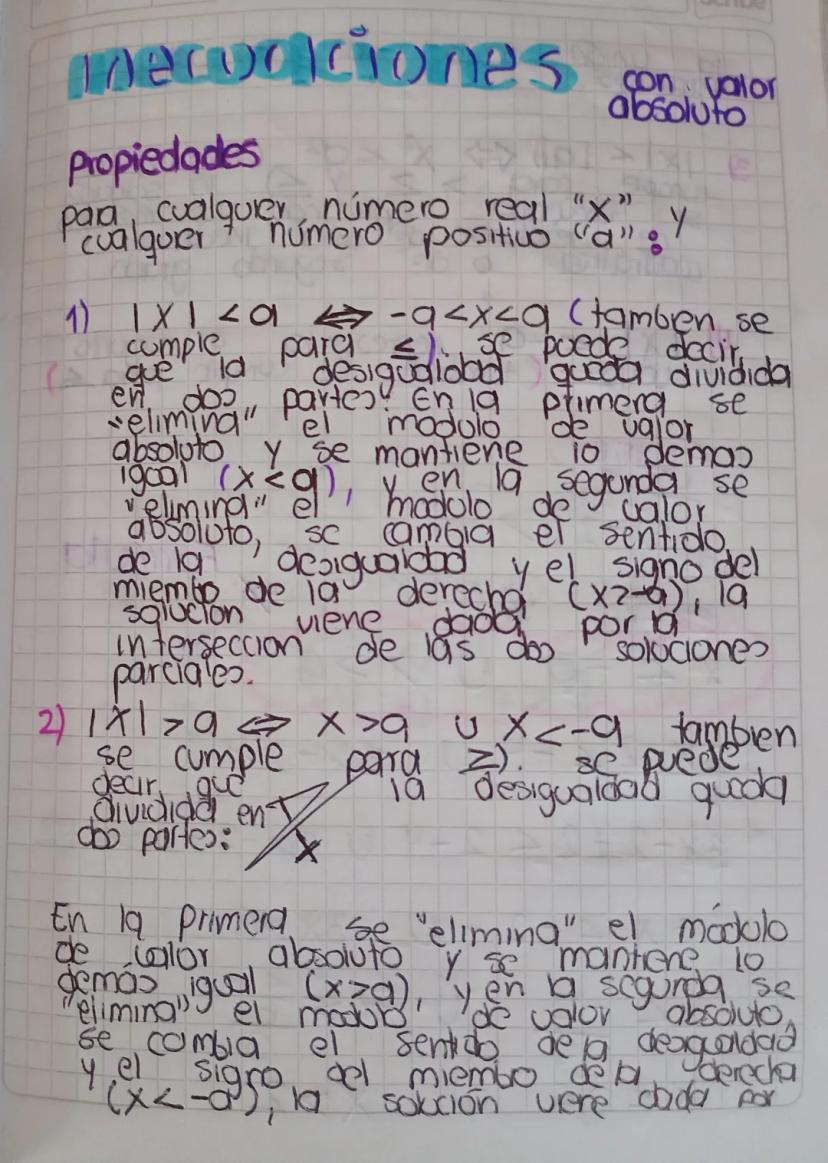 Inecuaciones con valor
absoluto
Propiedades
para cualquier número real "x" y
cualquier número positivo "a":
1) |x| < a ⇔ -a<x<a (tambien se
cumple para ≤). se puede decir,
que la desigualdad queda dividida
en dos partes: En la primera se
"elimina" el modulo de valor
absoluto y se mantiene lo demas
igual (x<a), y en la segunda se
"elimina" el modulo de valor
absoluto, se cambia el sentido
de la desigualdad y el signo del
miembo de la derecha (x>-a), la
solucion viene dada por la
interseccion de las dos soluciones
parciales.
2) |x| > a ⇔ x>a ∪ x<-a tambien
se cumple para ≥). se puede
decir, que la desigualdad queda
dividida en
dos partes:
x
En la primera se "elimina" el módulo
de valor absoluto y se mantiene lo
demás igual (x>a), y en la segunda se
"elimina" el modulo de valor absoluto,
se cambia el sentido de la desigualdad
y el signo del miembo de la derecha
(x<-a), la solución viene dada por